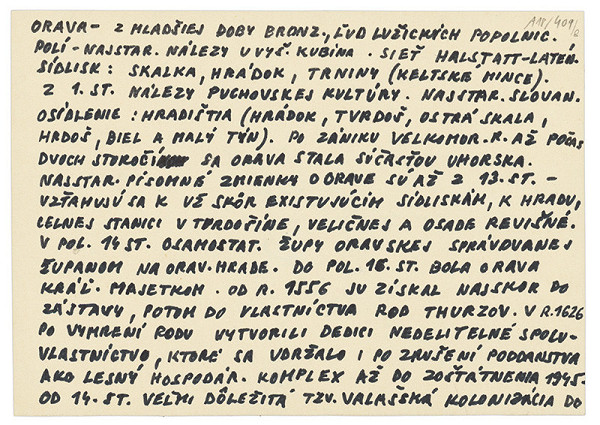 A18/409/2
ORAVA - Z MLADŠIEJ DOBY BRONZ., ĽUD LUŽICKÝCH POPOLNIC.
POLÍ - NAJSTAR. NÁLEZY U VYŠ. KUBÍNA . SIEŤ HALSTATT-LATÉN.
SÍDLISK : SKALKA, HRÁDOK, TRNINY (KELTSKE MINCE).
Z 1. ST. NÁLEZY PUCHOVSKEJ KULTÚRY. NAJSTAR. SLOVAN.
OSÍDLENIE : HRADIŠTIA (HRÁDOK, TVRDOŠ, OSTRÁ SKALA,
HRDOŠ, BIEL A MALÝ TÝN). PO ZÁNIKU VELKOMOR. R. AŽ POČAS
DVOCH STOROČÍ SA ORAVA STALA SÚČASŤOU UHORSKA.
NAJSTAR. PÍSOMNÉ ZMIENKY O ORAVE SÚ AŽ Z 13. ST. -
VZŤAHUJÚ SA K UŽ SKÔR EXISTUJÚCIM SÍDLISKÁM, K HRADU,
CELNEJ STANICI V TVRDOŠÍNE, VELIČNEJ A OSADE REVIŠNÉ.
V POL. 14 ST. OSAMOSTAT. ŽUPY ORAVSKEJ SPRÁVOVANEJ
ŽUPANOM NA ORAV. HRADE. DO POL. 16. ST. BOLA ORAVA
KRÁĽ. MAJETKOM. OD R. 1556 JU ZÍSKAL NAJSKOR DO
ZÁSTAVY, POTOM DO VLASTNÍCTVA ROD THURZOV. V R. 1626
PO VYMRENÍ RODU VYTVORILI DEDICI NEDELITELNÉ SPOLU-
VLASTNÍCTVO, KTORÉ SA UDRŽALO I PO ZRUŠENÍ PODDANSTVA
AKO LESNÝ HOSPODÁR. KOMPLEX AŽ DO ZOŠTÁTNENIA 1945.
OD 14. ST. VEĽMI DÔLEŽITÁ TZV. VALAŠSKÁ KOLONIZÁCIA DO